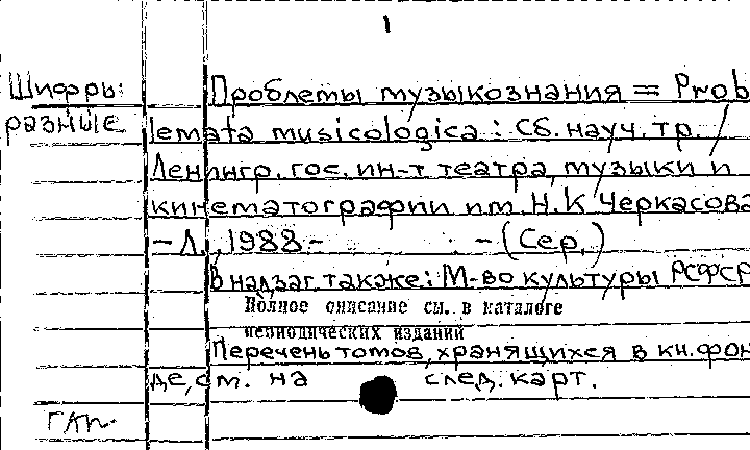 1
Шифры:
разные
Проблемы музыкознания = Prob
lemata musicologica : Сб. науч. тр. /
Ленингр. гос. ин-т театра, музыки и
кинематографии им. Н. К Черкасова
- Л., 1988- - (Сер.)
В надзаг. также: М-во культуры РСФСР
Полное описание см. в каталоге
периодических изданий
Перечень томов, хранящихся в кн. фон
де, см. на след. карт.